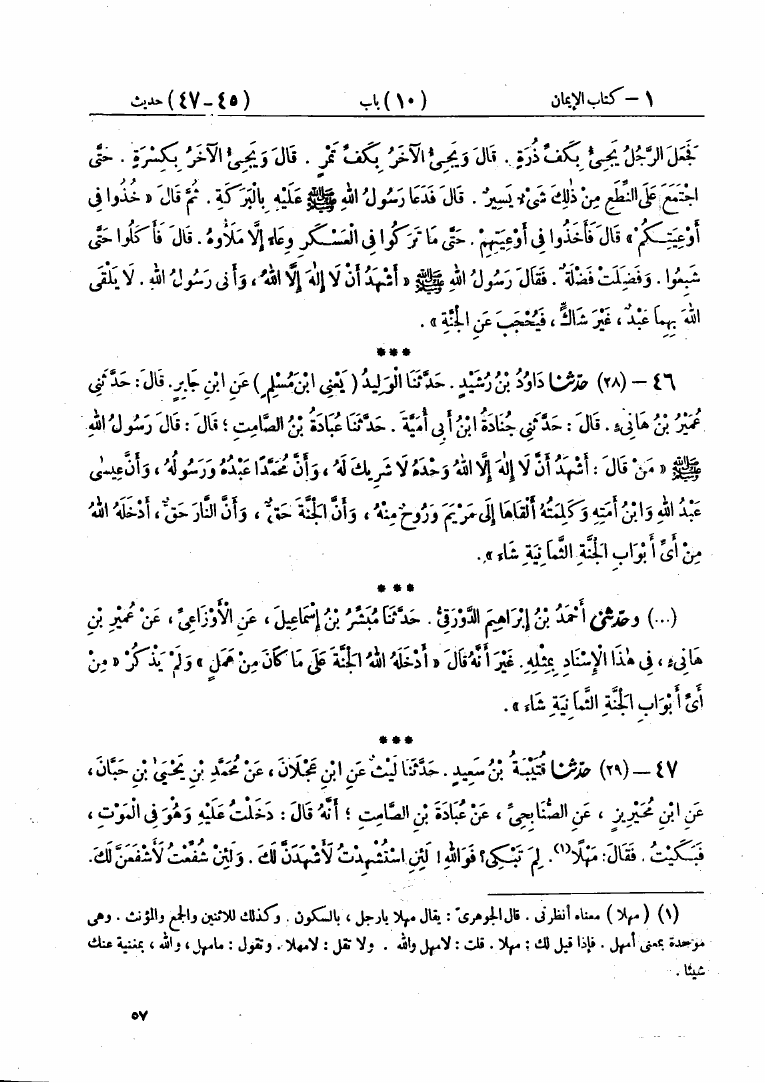 ١ – كتاب الإيمان (١٠) باب (٤٥–٤٧) حديث
فَجَعَلَ الرَّجُلُ يَجِىءُ بِكَفِّ ذُرَةٍ . قَالَ وَيَجِىءُ الْآخَرُ بِكَفِّ تَمْرٍ . قَالَ وَيَجِىءُ الْآخَرُ بِكِسْرَةٍ . حَتَّى
اجْتَمَعَ عَلَى النِّطَعِ مِنْ ذٰلِكَ شَىْءٌ يَسِيرٌ . قَالَ فَدَعَا رَسُولُ اللهِ ﷺ عَلَيْهِ بِالْبَرَكَةِ . ثُمَّ قَالَ « خُذُوا فِى
أَوْعِيَتِكُمْ » قَالَ فَأَخَذُوا فِى أَوْعِيَتِهِمْ . حَتَّى مَا تَرَكُوا فِى الْعَسْكَرِ وِعَاءً إِلَّا مَلَأُوهُ . قَالَ فَأَكَلُوا حَتَّى
شَبِعُوا . وَفَضِلَتْ فَضْلَةٌ . فَقَالَ رَسُولُ اللهِ ﷺ « أَشْهَدُ أَنْ لَا إِلٰهَ إِلَّا اللهُ ، وَأَنِّى رَسُولُ اللهِ . لَا يَلْقَى
اللهَ بِهِمَا عَبْدٌ ، غَيْرَ شَاكٍّ ، فَيُحْجَبَ عَنِ الْجَنَّةِ » .
***
٤٦ – (٢٨) حَدَّثَنَا دَاوُدُ بْنُ رُشَيْدٍ . حَدَّثَنَا الْوَلِيدُ ( يَعْنِى ابْنَ مُسْلِمٍ ) عَنِ ابْنِ جَابِرٍ . قَالَ : حَدَّثَنِى
عُمَيْرُ بْنُ هَانِىءٍ . قَالَ : حَدَّثَنِى جُنَادَةُ ابْنُ أَبِى أُمَيَّةَ . حَدَّثَنَا عُبَادَةُ بْنُ الصَّامِتِ ؛ قَالَ : قَالَ رَسُولُ اللهِ
ﷺ « مَنْ قَالَ : أَشْهَدُ أَنْ لَا إِلٰهَ إِلَّا اللهُ وَحْدَهُ لَا شَرِيكَ لَهُ ، وَأَنَّ مُحَمَّدًا عَبْدُهُ وَرَسُولُهُ ، وَأَنَّ عِيسَى
عَبْدُ اللهِ وَابْنُ أَمَتِهِ وَكَلِمَتُهُ أَلْقَاهَا إِلَى مَرْيَمَ وَرُوحٌ مِنْهُ ، وَأَنَّ الْجَنَّةَ حَقٌّ ، وَأَنَّ النَّارَ حَقٌّ ، أَدْخَلَهُ اللهُ
مِنْ أَىِّ أَبْوَابِ الْجَنَّةِ الثَّمَانِيَةِ شَاءَ » .
***
(...) وحَدَّثَنِى أَحْمَدُ بْنُ إِبْرَاهِيمَ الدَّوْرَقِىُّ . حَدَّثَنَا مُبَشِّرُ بْنُ إِسْمَاعِيلَ ، عَنِ الْأَوْزَاعِىِّ ، عَنْ عُمَيْرِ بْنِ
هَانِىءٍ ، فِى هٰذَا الْإِسْنَادِ بِمِثْلِهِ . غَيْرَ أَنَّهُ قَالَ « أَدْخَلَهُ اللهُ الْجَنَّةَ عَلَى مَا كَانَ مِنْ عَمَلٍ » وَلَمْ يَذْكُرْ « مِنْ
أَىِّ أَبْوَابِ الْجَنَّةِ الثَّمَانِيَةِ شَاءَ » .
***
٤٧ – (٢٩) حَدَّثَنَا قُتَيْبَةُ بْنُ سَعِيدٍ . حَدَّثَنَا لَيْثٌ عَنِ ابْنِ عَجْلَانَ ، عَنْ مُحَمَّدِ بْنِ يَحْيَى بْنِ حَبَّانَ ،
عَنِ ابْنِ مُحَيْرِيزٍ ، عَنِ الصُّنَابِحِىِّ ، عَنْ عُبَادَةَ بْنِ الصَّامِتِ ؛ أَنَّهُ قَالَ : دَخَلْتُ عَلَيْهِ وَهُوَ فِى الْمَوْتِ ،
فَبَكَيْتُ . فَقَالَ : مَهْلًا(١) . لِمَ تَبْكِى ؟ فَوَاللهِ ! لَئِنِ اسْتُشْهِدْتُ لَأَشْهَدَنَّ لَكَ . وَلَئِنْ شُفِّعْتُ لَأَشْفَعَنَّ لَكَ .
(١) ( مهلا ) معناه أنظرنى . قال الجوهرىّ : يقال مهلا يارجل ، بالسكون . وكذلك للاثنين والجمع والمؤنث . وهى
موحدة بمعنى أمهل . فإذا قيل لك : مهلا . قلت : لامهل والله . ولا تقل : لامهلا . وتقول : مامهل ، والله ، بمغنية عنك
شيئا .
٥٧